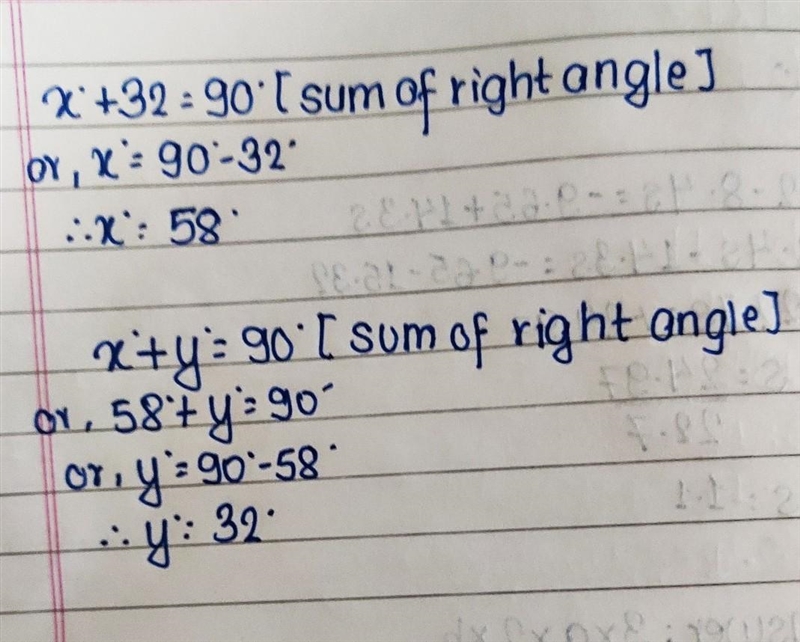 x°+32=90°[sum of right angle]
or, x°=90°-32°
∴x°= 58°
x°+y°=90°[sum of right angle]
or, 58°+y°=90°
or, y°=90°-58°
∴y°= 32°